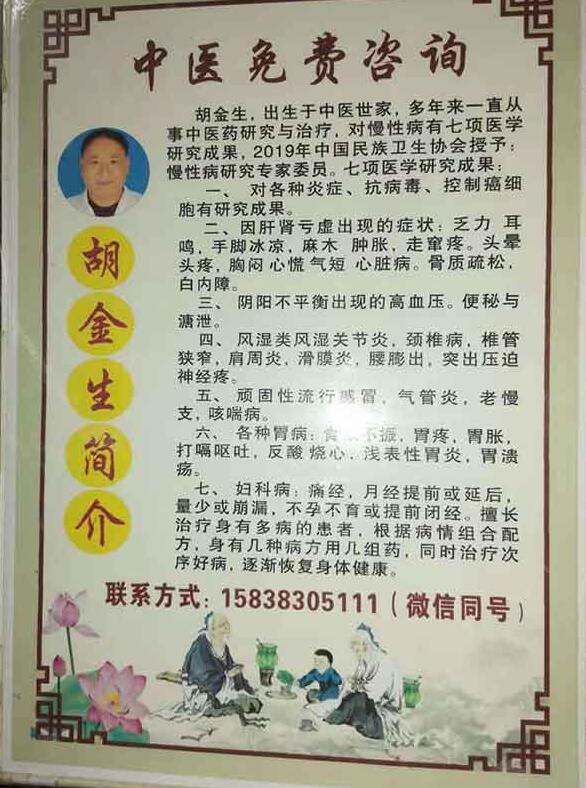 中医免费咨询
胡金生，出生于中医世家，多年来一直从
事中医药研究与治疗，对慢性病有七项医学
研究成果，2019年中国民族卫生协会授予：
慢性病研究专家委员。七项医学研究成果：
一、 对各种炎症、抗病毒、控制癌细
胞有研究成果。
二、因肝肾亏虚出现的症状：乏力 耳
鸣，手脚冰凉，麻木 肿胀，走窜疼。头晕
头疼，胸闷 心慌 气短 心脏病。骨质疏松，
白内障。
三、 阴阳不平衡出现的高血压。便秘与
溏泄。
四、 风湿类风湿关节炎，颈椎病，椎管
狭窄，肩周炎，滑膜炎，腰膨出，突出压迫
神经疼。
五、 顽固性流行感冒，气管炎，老慢
支，咳喘病。
六、 各种胃病：食 不振，胃疼，胃胀，
打嗝呕吐，反酸 烧心，浅表性胃炎，胃溃
疡。
七、 妇科病：痛经，月经提前或延后，
量少或崩漏，不孕不育或提前闭经。擅长
治疗身有多病的患者，根据病情组合配
方，身有几种病方用几组药，同时治疗次
序好病，逐渐恢复身体健康。
联系方式：15838305111（微信同号）
胡
金
生
简
介